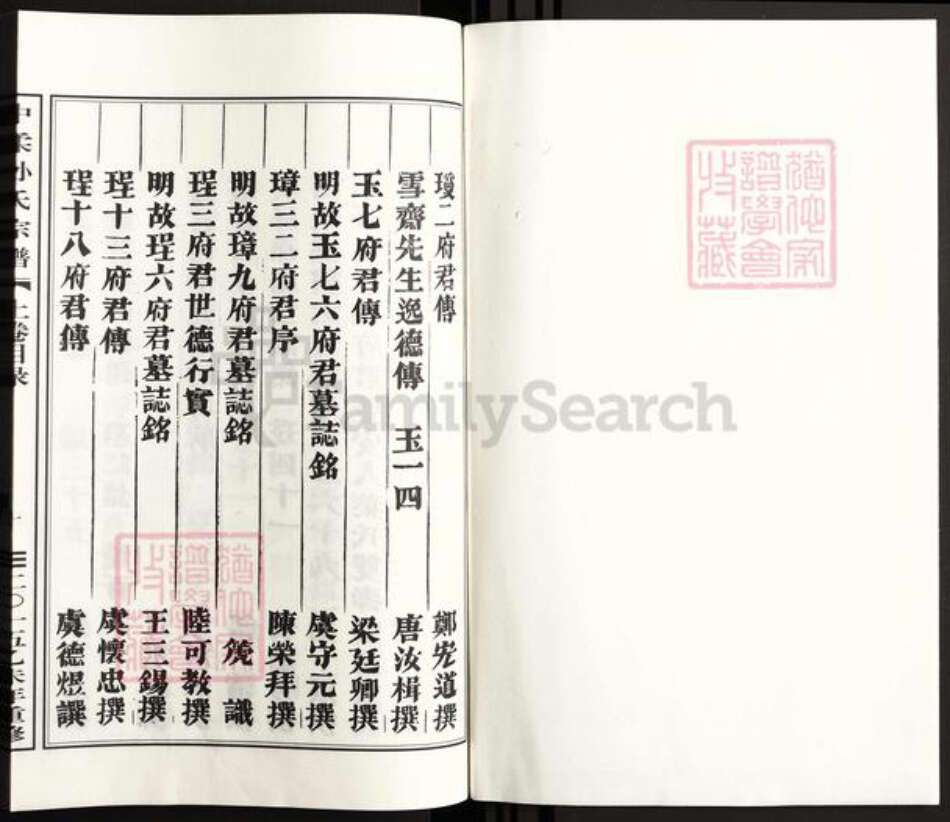 瑗二府君傳 鄭宪道撰
雪齋先生逸德傳 玉一四 唐汝楫撰
玉七府君傳 梁廷卿撰
明故玉七六府君墓誌銘 虞守元撰
璋三二府君序 陳榮拜撰
明故璋九府君墓誌銘 識
珵三府君世德行實 陸可教撰
明故珵六府君墓誌銘 王三錫撰
珵十三府君傳 虞懷忠撰
珵十八府君傳 虞德煜譔
孙氏宗譜 上卷目录
二〇一五乙未年重修
FamilySearch
譜學會
收藏